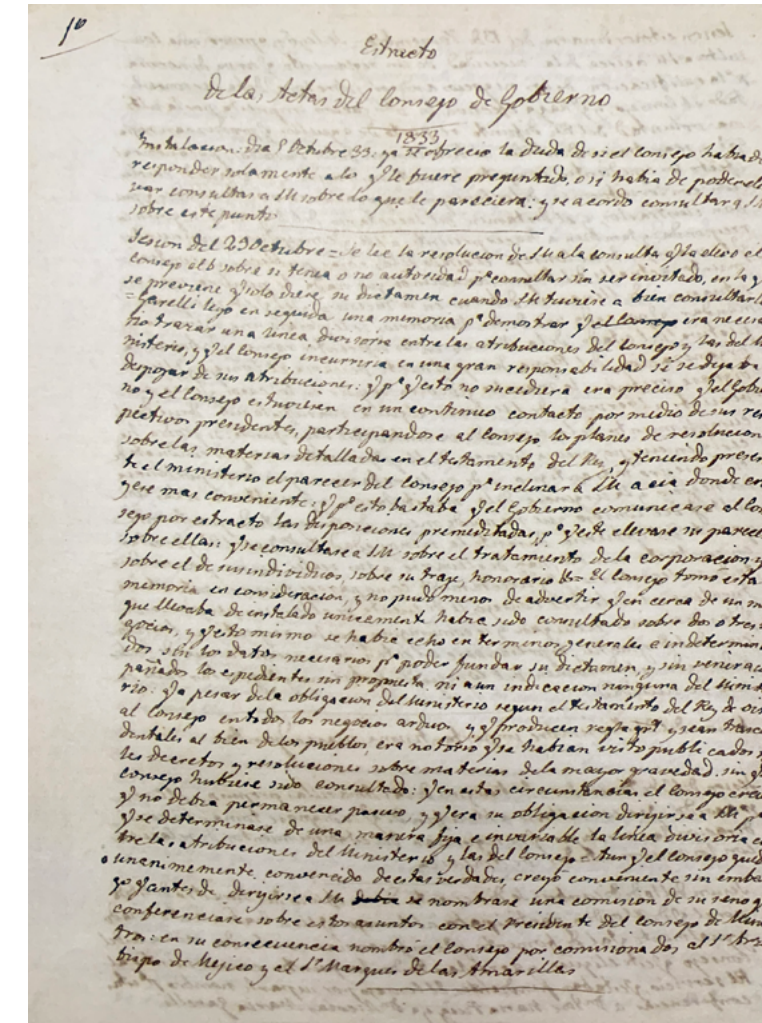 1º
Estracto
de las Actas del Consejo de Gobierno
1833
Instalacion: dia 5 Octubre 33: ya se ofrecio la duda de si el Consejo habia de
responder solamente a lo q.e le fuere preguntado, o si habia de poder ele
var consultas a S M sobre lo que le pareciera: y se acordo consultar a S M
sobre este punto.
Sesion del 29 Octubre = Se lee la resolucion de S M a la consulta q.e la elevo el
Consejo el 6 sobre si tenia o no autoridad p.a consultar sin ser invitado, en la q
se previene q.e solo diese su dictamen cuando S M tuviese a bien consultarle
= Garelli leyo en seguida una memoria p.a demostrar q.e el Consejo era necesa
rio trazar una linea divisoria entre las atribuciones del Consejo y las del Mi
nisterio, y q.e el Consejo incurriria en una gran responsabilidad si se dejaba
despojar de sus atribuciones: q.e p.a q.e esto no sucediera era preciso q.e el Gobier
no y el Consejo estuviesen en un continuo contacto por medio de sus res
pectivos presidentes, participandose al Consejo los planes de resolucion
sobre las materias detalladas en el testamento del Rey, y teniendo presen
te el ministerio el parecer del Consejo p.a inclinar a S M a cia donde cre
yese mas conveniente: q.e p.a esto bastaba q.e el Gobierno comunicase al Con
sejo por estracto las disposiciones premeditadas, p.a q.e este elevase su parecer
sobre ellas: q.e se consultase a S M sobre el tratamiento de la corporacion y
sobre el de sus individuos, sobre su traje, honorario &.a = El Consejo tomó esta
memoria en consideracion, y no pudo menos de advertir q.e en cerca de un m
que llevaba de instalado unicamente habia sido consultado sobre dos o tres ne
gocios, y q.e esto mismo se habia echo en terminos generales e indetermina
dos sin los datos necesarios p.a poder fundar su dictamen, y sin venir acom
pañados los espedientes sin propuesta, ni aun indicacion ninguna del Minis
rio: q.e a pesar de la obligacion del Ministerio segun el testamento del Rey de oir
al Consejo en todos los negocios arduos, y q.e producen regla gral y sean trascen
dentales al bien de los pueblos, era notorio q.e se habian visto publicados
les decretos y resoluciones sobre materias de la mayor gravedad, sin q.e
Consejo hubiese sido consultado: q.e en estas circunstancias el Consejo creia
q.e no debia permanecer pasivo, y q.e era su obligacion dirijirse a S M p.a
q.e se determinase de una manera fija e invariable la linea divisoria en
tre las atribuciones del Ministerio y las del Consejo. Aun q.e el Consejo quedó
unanimemente convencido de estas verdades, creyó conveniente sin embar
go q.e antes de dirijirse a S M debia se nombrase una comision de su seno q
conferenciase sobre estos asuntos con el Presidente del Consejo de Minis
tros: en su consecuencia nombró el Consejo por comisionados al S.r Arzo
bispo de Mejico y el S.r Marques de las Amarillas